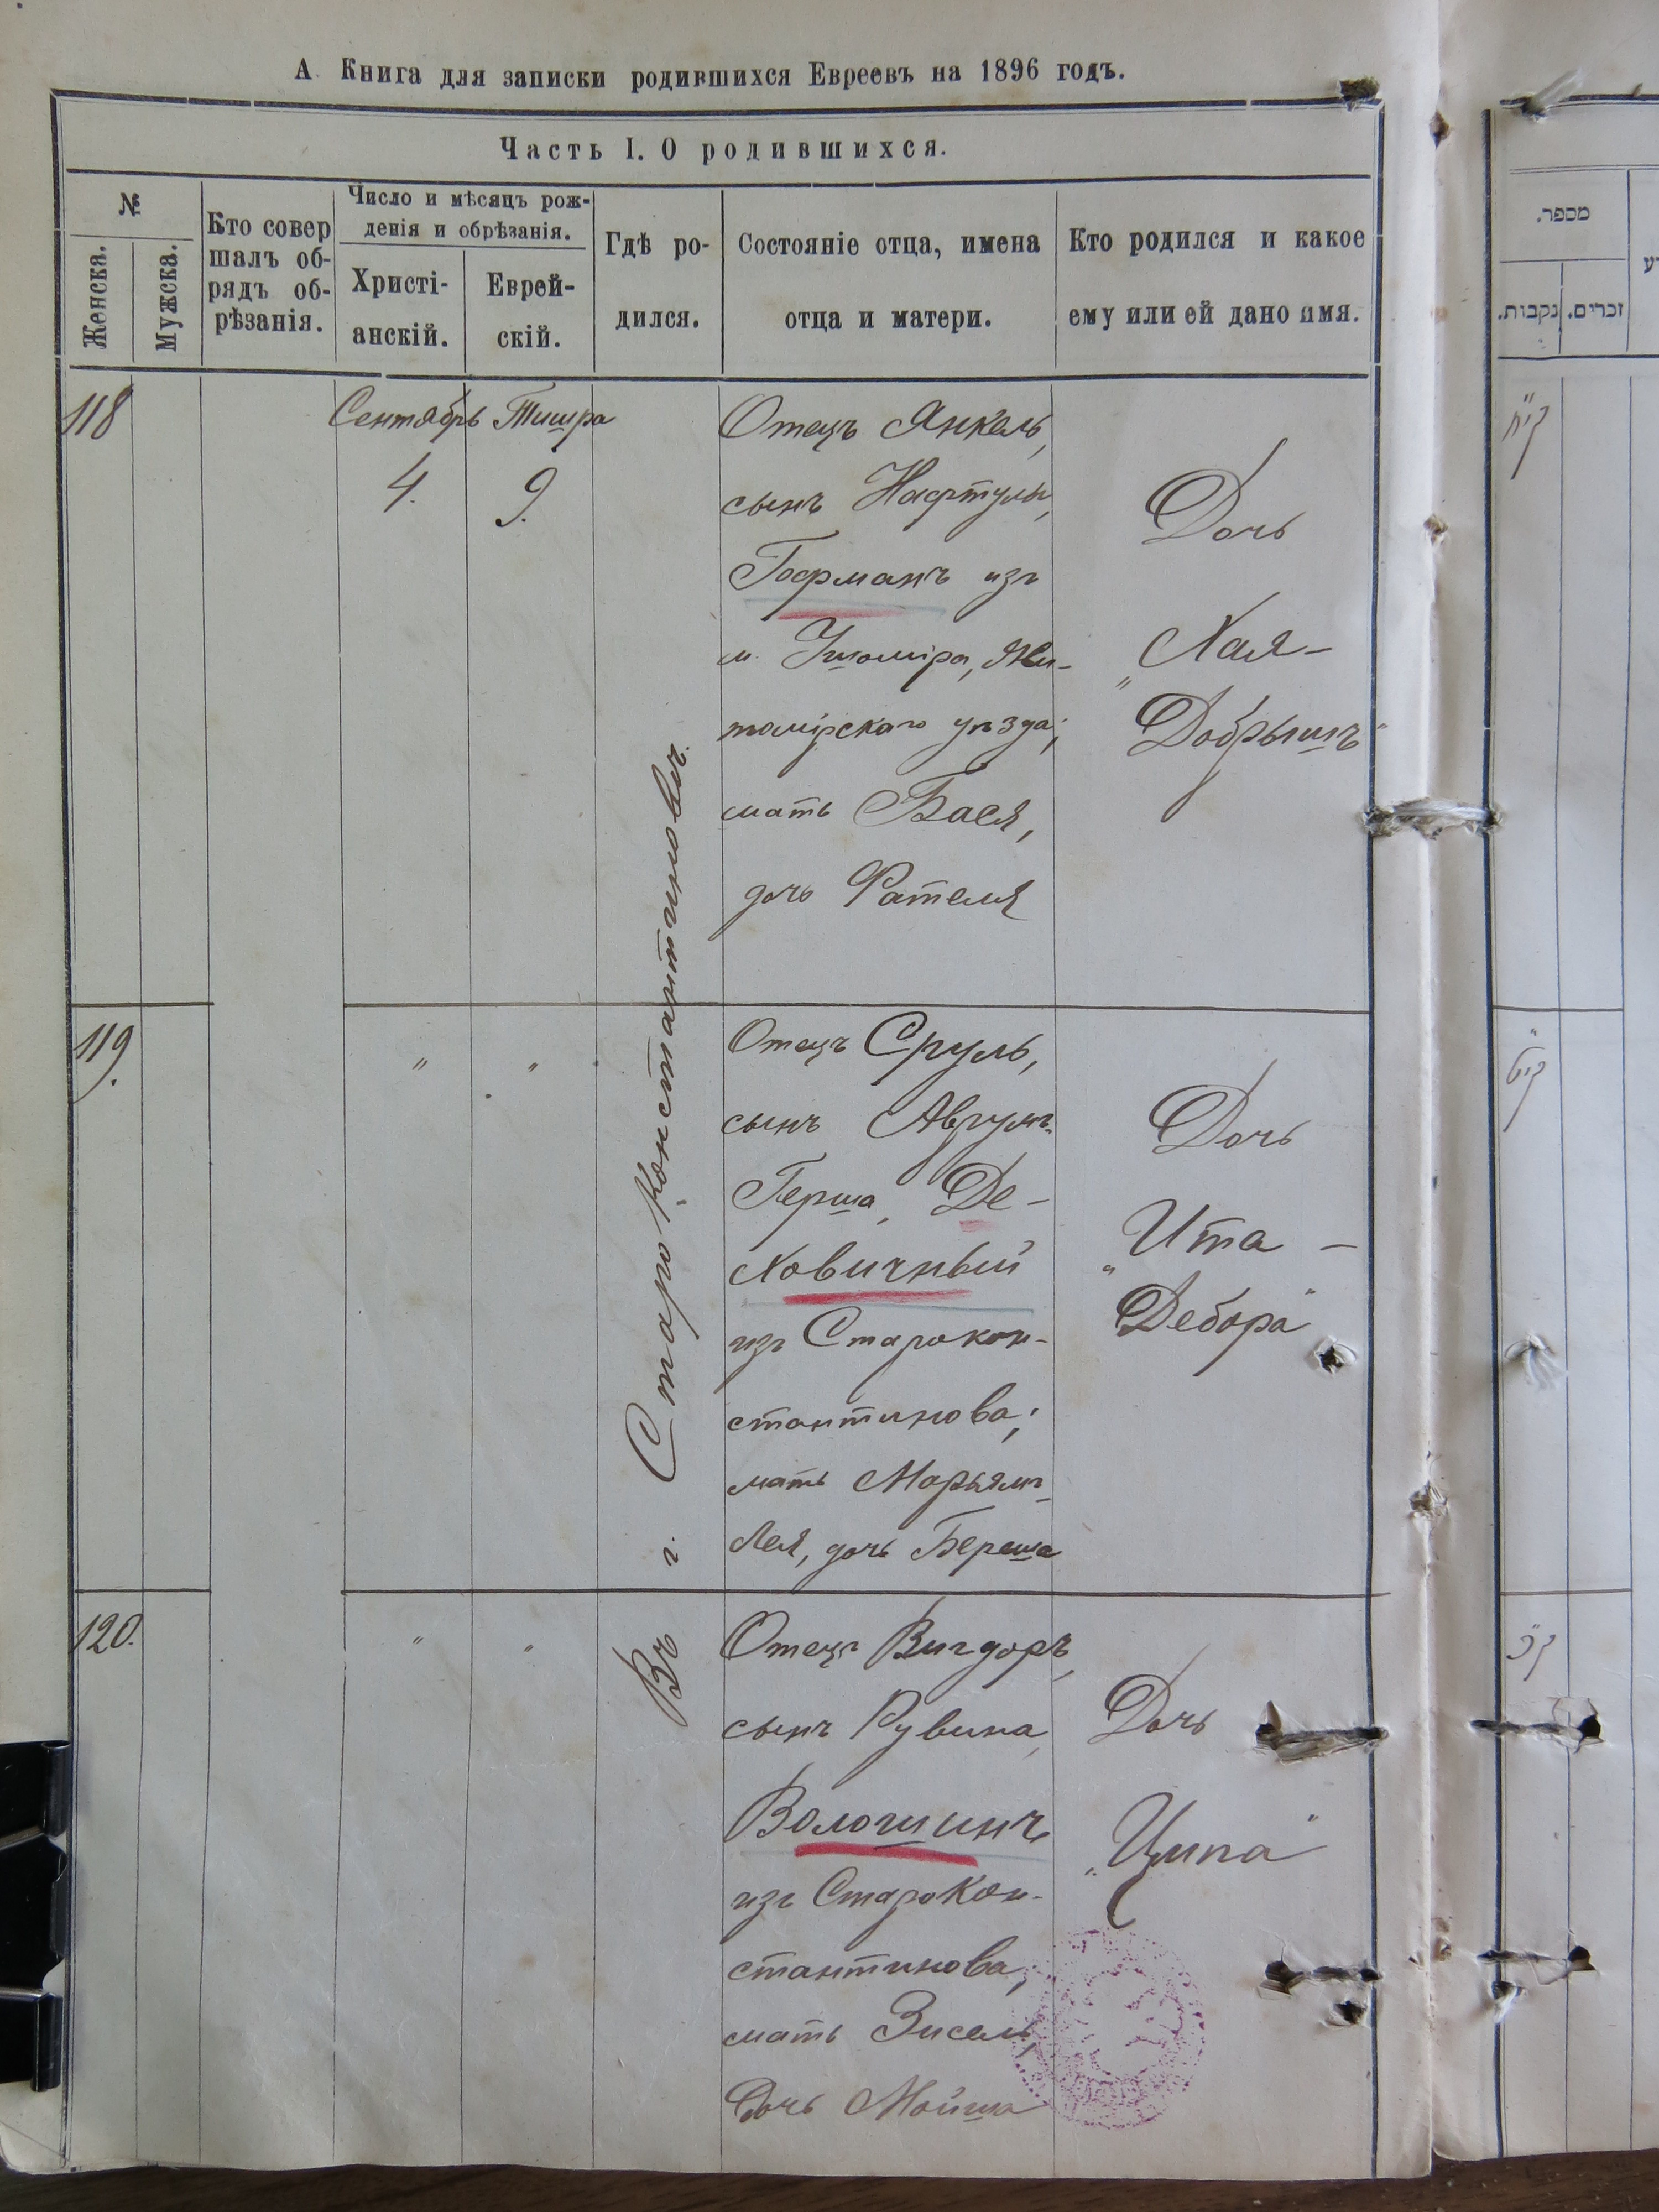 А Книга для записки родившихся Евреевъ на 1896 годъ.
Часть I. О родившихся.
№
Женска.
Мужска.
Кто совер
шалъ об-
рядъ об-
рѣзанія.
Число и мѣсяцъ рож-
денія и обрѣзанія.
Христі-
анскій.
Еврей-
скій.
Гдѣ ро-
дился.
Состояніе отца, имена
отца и матери.
Кто родился и какое
ему или ей дано имя.
118
Сентябрь
4.
Тишра
9.
Въ г. Староконстантиновѣ.
Отецъ Янкель,
сынъ Нафтулы,
Гофманъ изъ
м. Ушомира, Жи-
томірскаго уѣзда;
мать Бася,
дочь Фателя
Дочь
„Хая-
Добрышъ"
119.
"
"
Отецъ Сруль,
сынъ Аврумъ-
Герша, Де-
ховичный
изъ Старокон-
стантинова;
мать Марьямъ-
Лея, дочь Береша
Дочь
„Ита -
Дебора"
120.
"
"
Отецъ Вигдоръ,
сынъ Рувина,
Волошинъ
изъ Старокон-
стантинова,
мать Зисель,
дочь Мойша
Дочь
„Ципа"
מספר.
נקבות.
זכרים.
קי״ח
קי״ט
ק״כ